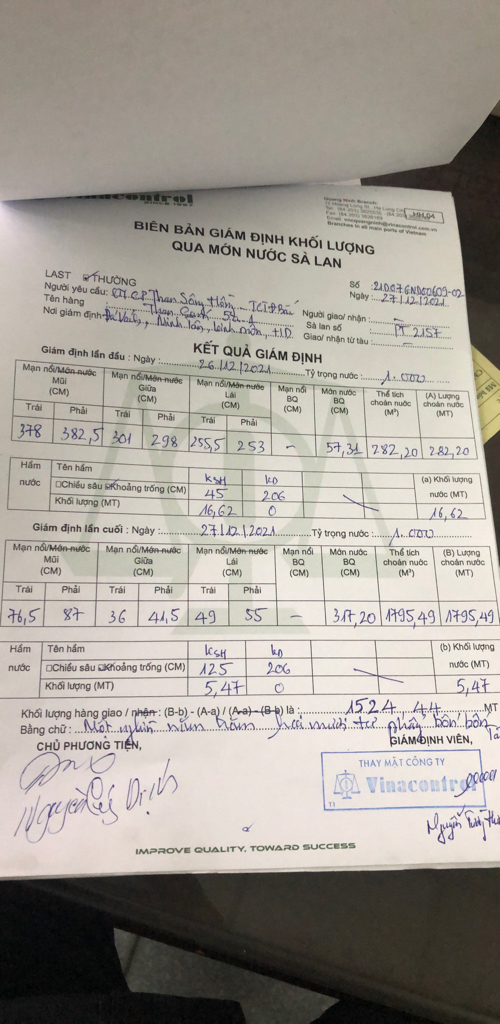 Vinacontrol
SINCE 1957
Quang Ninh Branch:
HH.04
Branches in all main ports of Vietnam
BIÊN BẢN GIÁM ĐỊNH KHỐI LƯỢNG
QUA MỚN NƯỚC SÀ LAN
LAST THƯỜNG
Số :21D07GND00609-02
Người yêu cầu: CTCP Than Sông Hồng - TCT Đ Bắc
Ngày : 27/12/2021
Tên hàng Than Cám 5a.1
Người giao/ nhận :
Sà lan số : PT 2157
Nơi giám định: Minh Tân, Kinh Môn, HD
Giao/ nhận từ tàu :
KẾT QUẢ GIÁM ĐỊNH
Giám định lần đầu : Ngày : 26/12/2021 Tỷ trọng nước : 1.000
Mạn nổi/Mớn nước Mũi (CM) Mạn nổi/Mớn nước Giữa (CM) Mạn nổi/Mớn nước Lái (CM) Mạn nổi BQ (CM) Mớn nước BQ (CM) Thể tích choán nước (M³) (A) Lượng choán nước (MT)
Trái Phải Trái Phải Trái Phải
378 382,5 301 298 255,5 253 - 57,31 282,20 282,20
Hầm nước Tên hầm KSH KD (a) Khối lượng nước (MT)
□Chiều sâu ☑Khoảng trống (CM) 45 206
Khối lượng (MT) 16,62 0 16,62
Giám định lần cuối : Ngày : 27/12/2021 Tỷ trọng nước : 1.000
Mạn nổi/Mớn nước Mũi (CM) Mạn nổi/Mớn nước Giữa (CM) Mạn nổi/Mớn nước Lái (CM) Mạn nổi BQ (CM) Mớn nước BQ (CM) Thể tích choán nước (M³) (B) Lượng choán nước (MT)
Trái Phải Trái Phải Trái Phải
76,5 87 36 41,5 49 55 - 317,20 1795,49 1795,49
Hầm nước Tên hầm KSH KD (b) Khối lượng nước (MT)
□Chiều sâu ☑Khoảng trống (CM) 125 206
Khối lượng (MT) 5,47 0 5,47
Khối lượng hàng giao / nhận : (B-b) - (A-a) / (A-a) - (B-b) là : 1524,44 MT
Bằng chữ : Một nghìn năm trăm hai mươi tư phẩy bốn bốn Tấn
CHỦ PHƯƠNG TIỆN,
GIÁM ĐỊNH VIÊN,
THAY MẶT CÔNG TY
Vinacontrol
T1
IMPROVE QUALITY, TOWARD SUCCESS